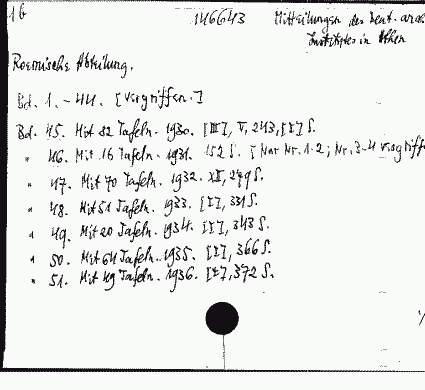 16 146643 Mitteilungen des Deut. arch
Institutes in Athen
Roemische Abteilung.
Bd. 1.-44. [Vergriffen.]
Bd. 45. Mit 82 Tafeln. 1930. [III], V, 243, [I] S.
" 46. Mit 16 Tafeln. 1931. 152 S. [Nur Nr. 1-2; Nr. 3-4 vergriffe
" 47. Mit 70 Tafeln. 1932. XII, 299 S.
" 48. Mit 51 Tafeln. 1933. [I], 331 S.
" 49. Mit 20 Tafeln. 1934. [I], 343 S.
" 50. Mit 64 Tafeln. 1935. [I], 366 S.
" 51. Mit 49 Tafeln. 1936. [I], 372 S.